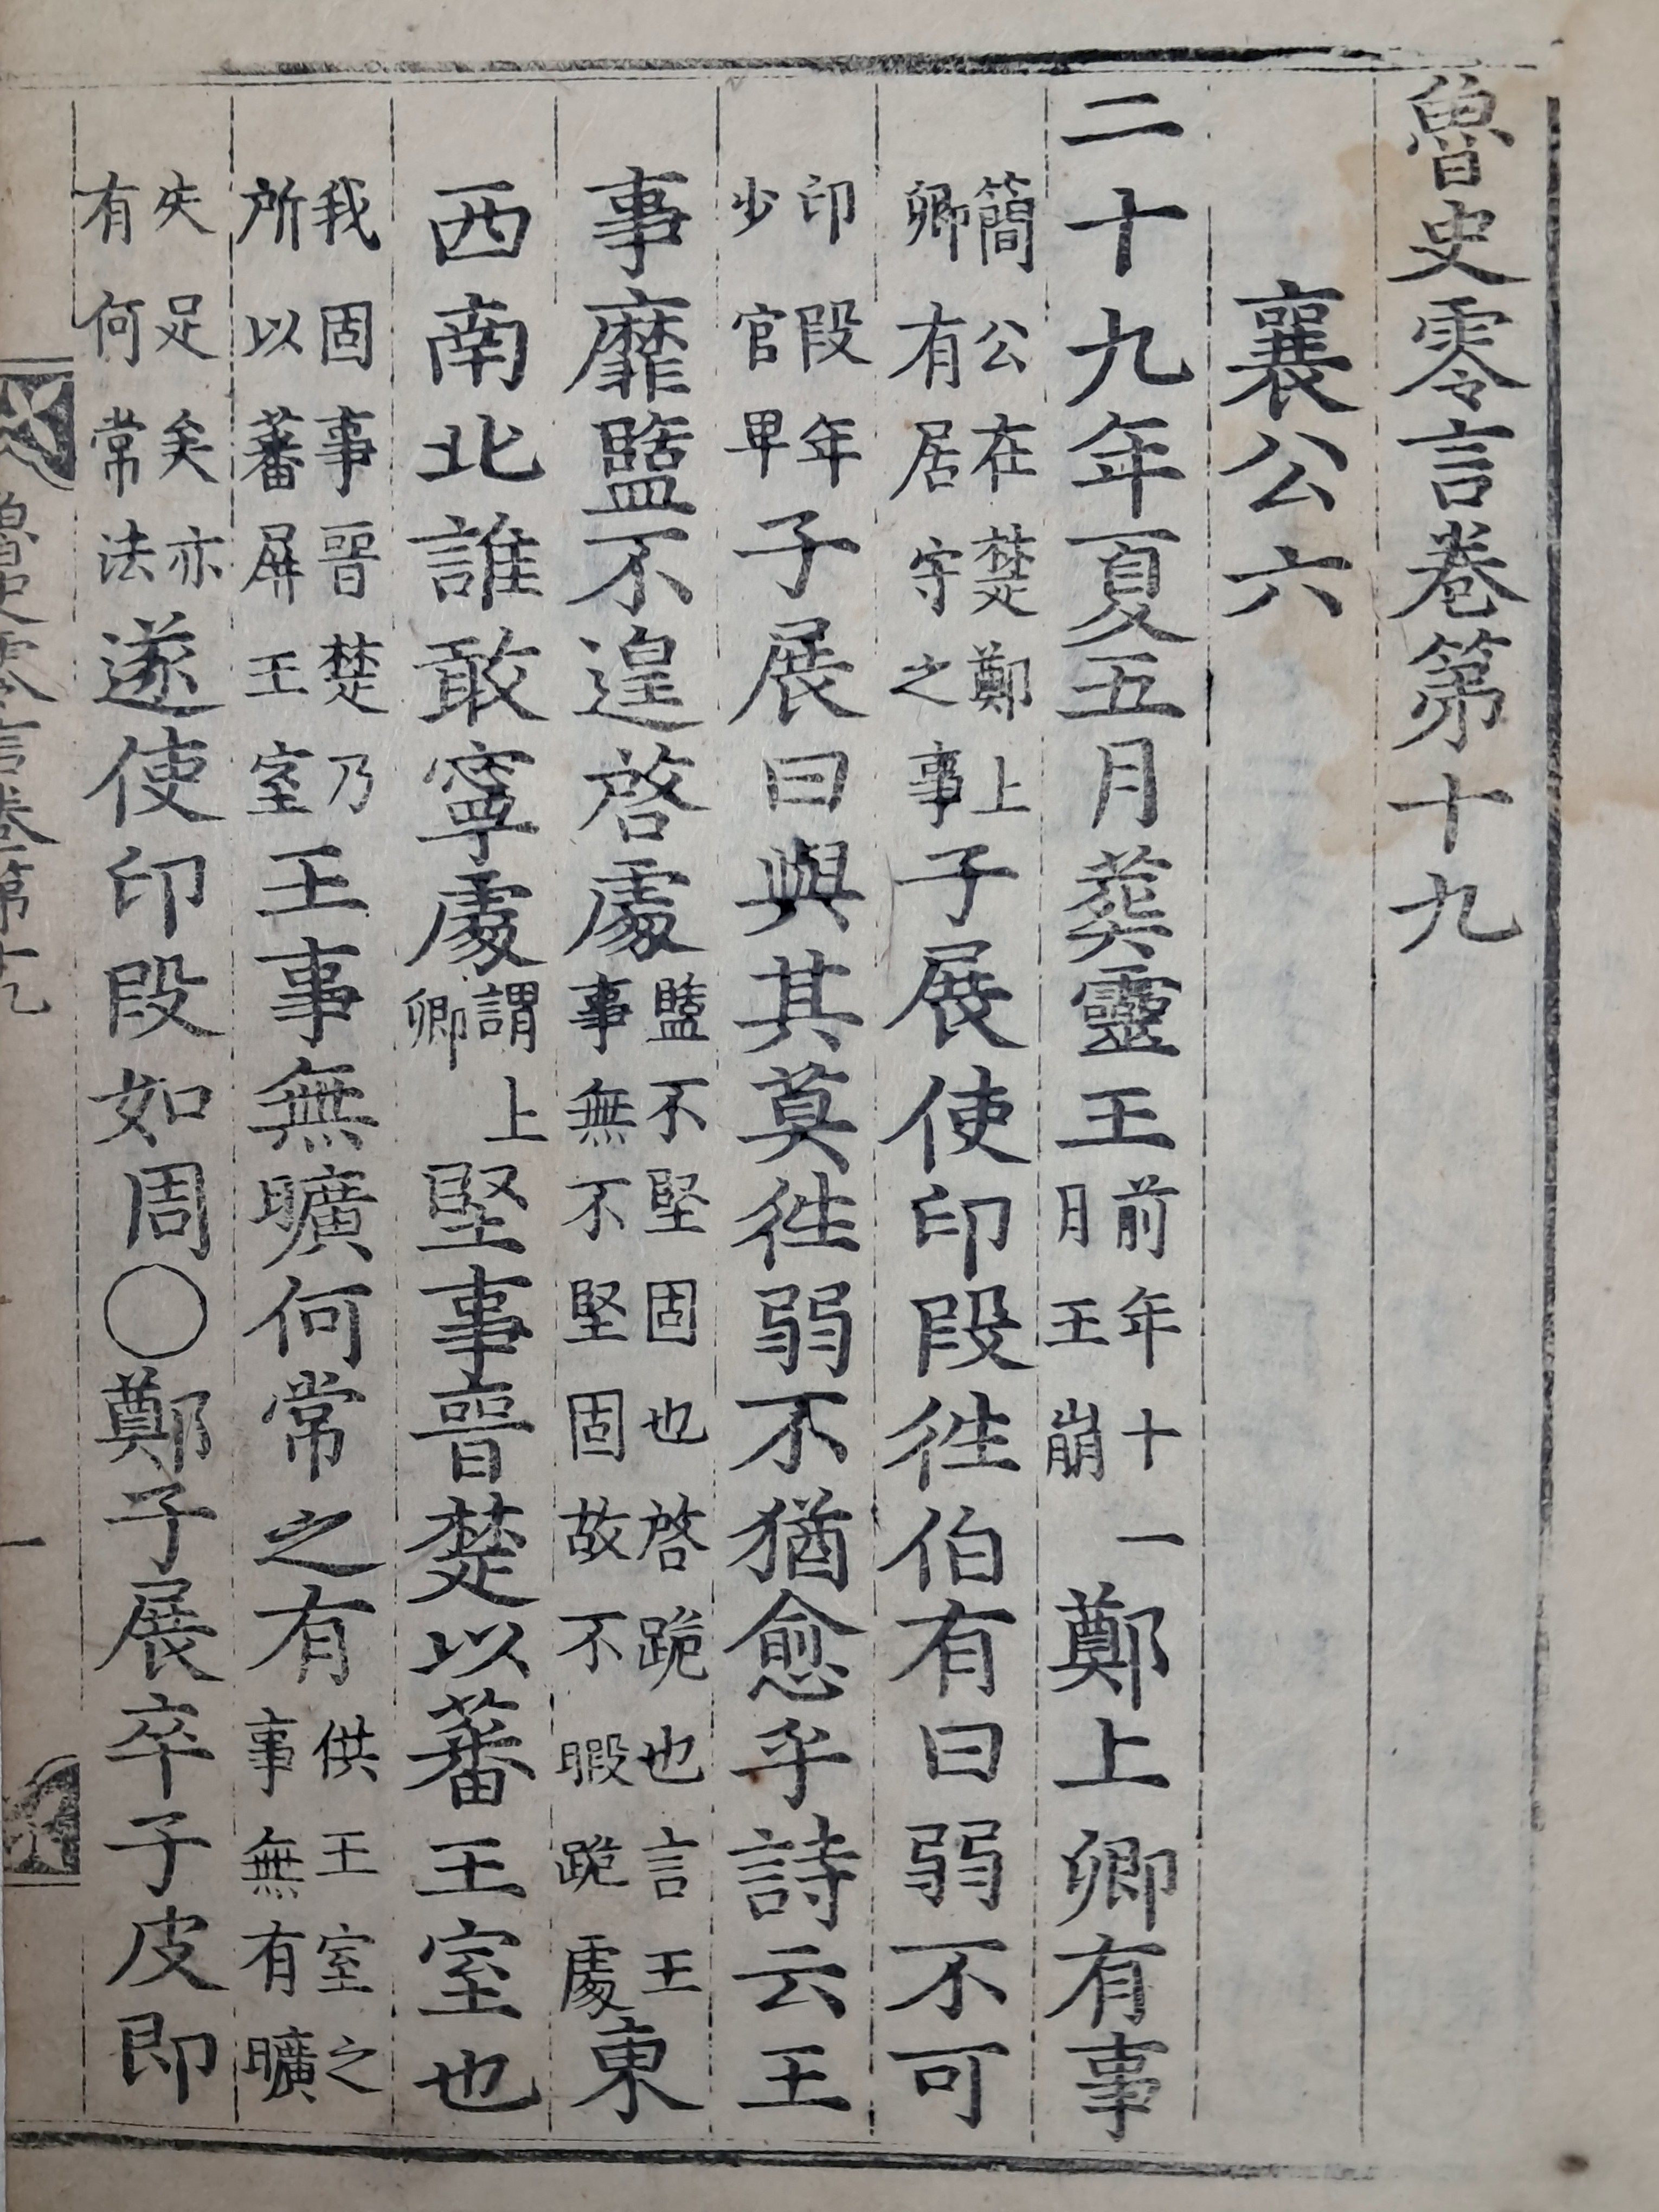 魯史零言卷第十九
襄公六
二十九年夏五月葬靈王前年十一月王崩鄭上卿有事
簡公在楚鄭上卿有居守之事子展使印段徃伯有曰弱不可
印段年少官卑子展曰與其莫徃弱不猶愈乎詩云王
事靡盬不遑啓處盬不堅固也啓跪也言王事無不堅固故不暇跪處東
西南北誰敢寧處謂上卿堅事晉楚以蕃王室也
我固事晉楚乃所以蕃屏王室王事無曠何常之有供王室之事無有曠
失足矣亦有何常法遂使印段如周○鄭子展卒子皮即
魯史零言卷第十九
一